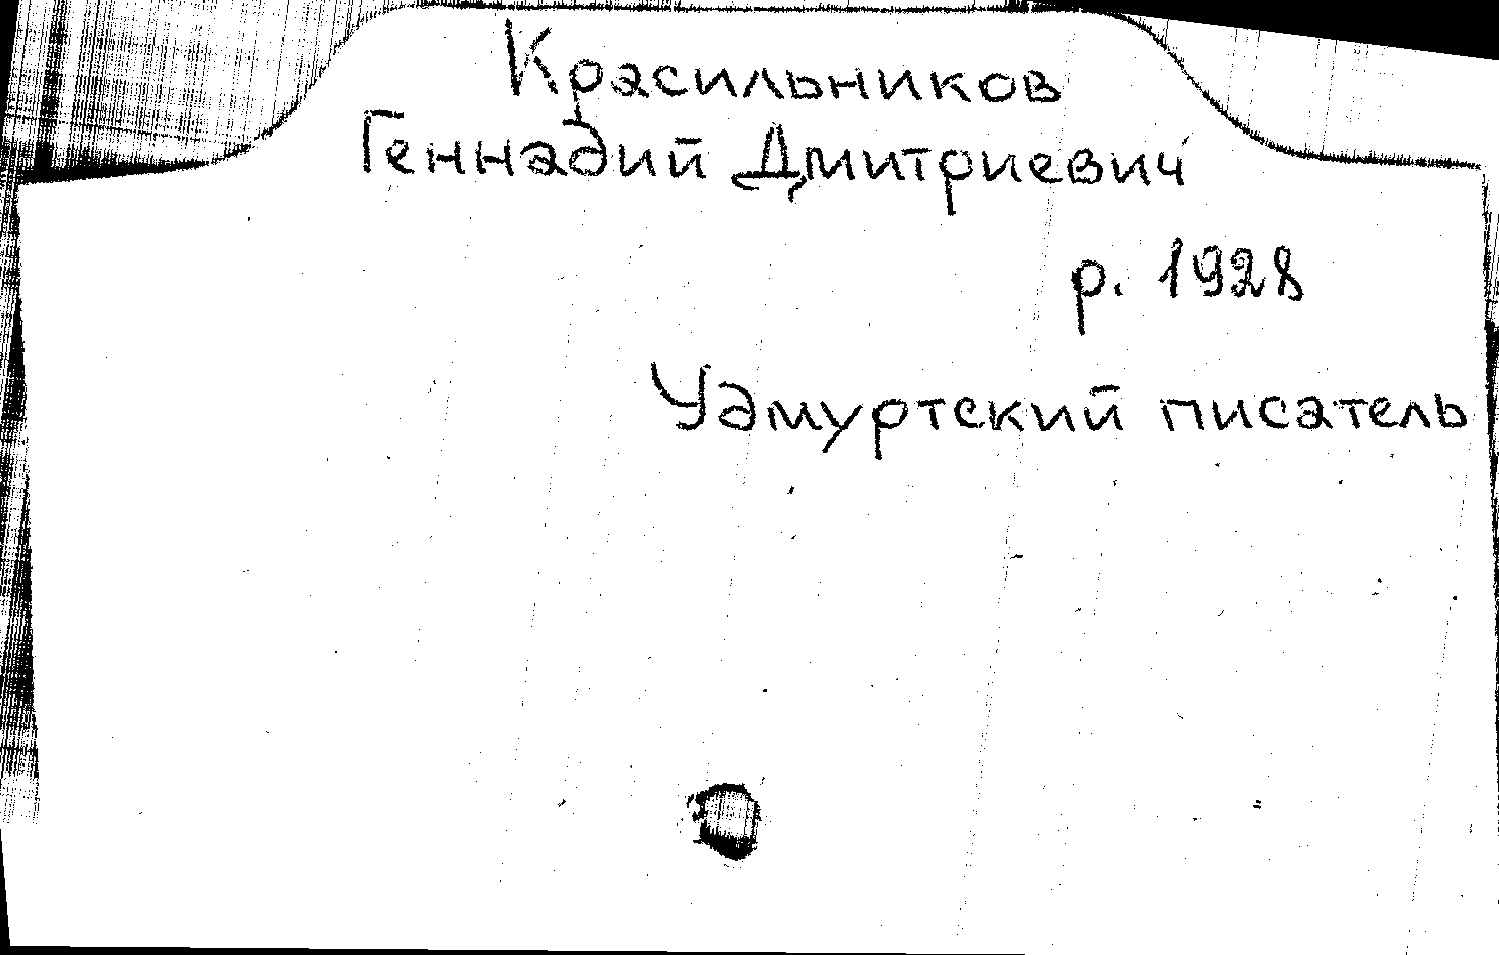 Красильников
Геннадий Дмитриевич
р. 1928
Удмуртский писатель